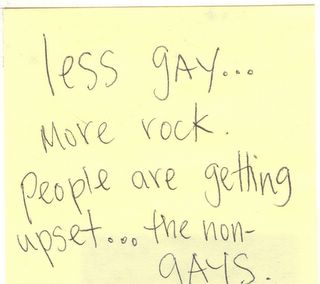 less gAy...
More rock.
People are getting
upset... the non-
gAYS.